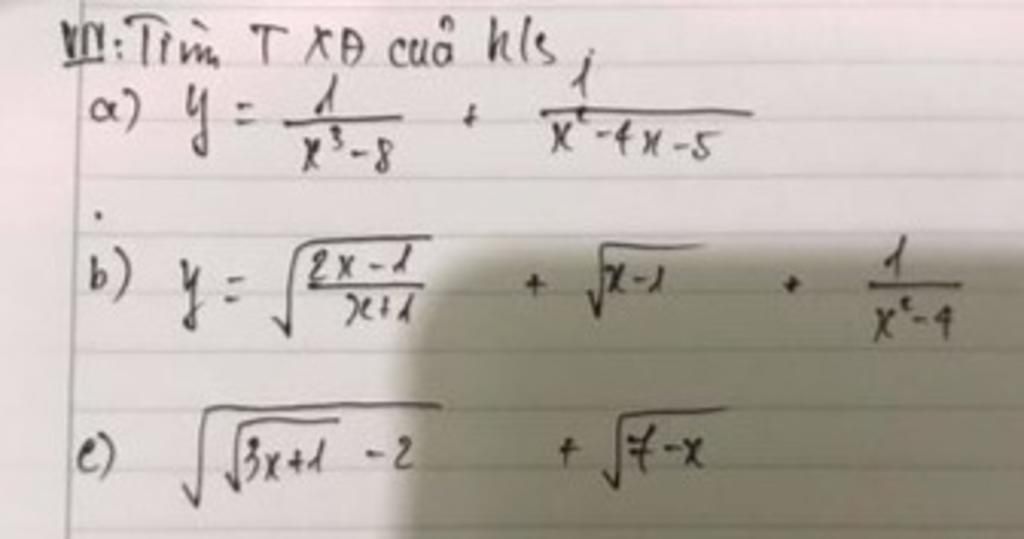 VII: Tìm TXĐ của h/s
a) y = 1/(x³-8) + 1/(x²-4x-5)
b) y = √((2x-1)/(x+1)) + √(x-1) + 1/(x²-4)
c) √(√(3x+1) - 2) + √(7-x)